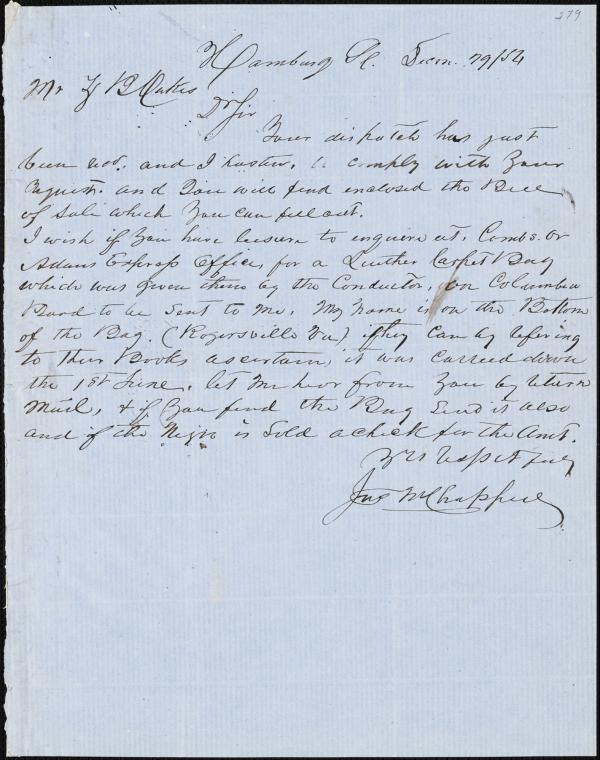 279
Hamburg SC. Decm. 29/54
Mr Z B Oakes
Dr Sir
Your dispatch has just
been recd. and I hasten, to comply with Your
request. and You will find enclosed the Bill
of Sale which You can fill out.
I wish if You have leisure to enquire at, Combs. or
Adams Express Office, for a Leather Carpet Bag
which was given them by the Conductor, on Columbia
Road to be sent to me, My name is on the Bottom
of the Bag. (Rogersville) if they can by refering
to their Books ascertain, it was carried down
the 1st June, let me hear from You by return
Mail, & if You find the Bag send it also
and if the Negro is sold a check for the Amt.
Yrs respectfully
Chappell